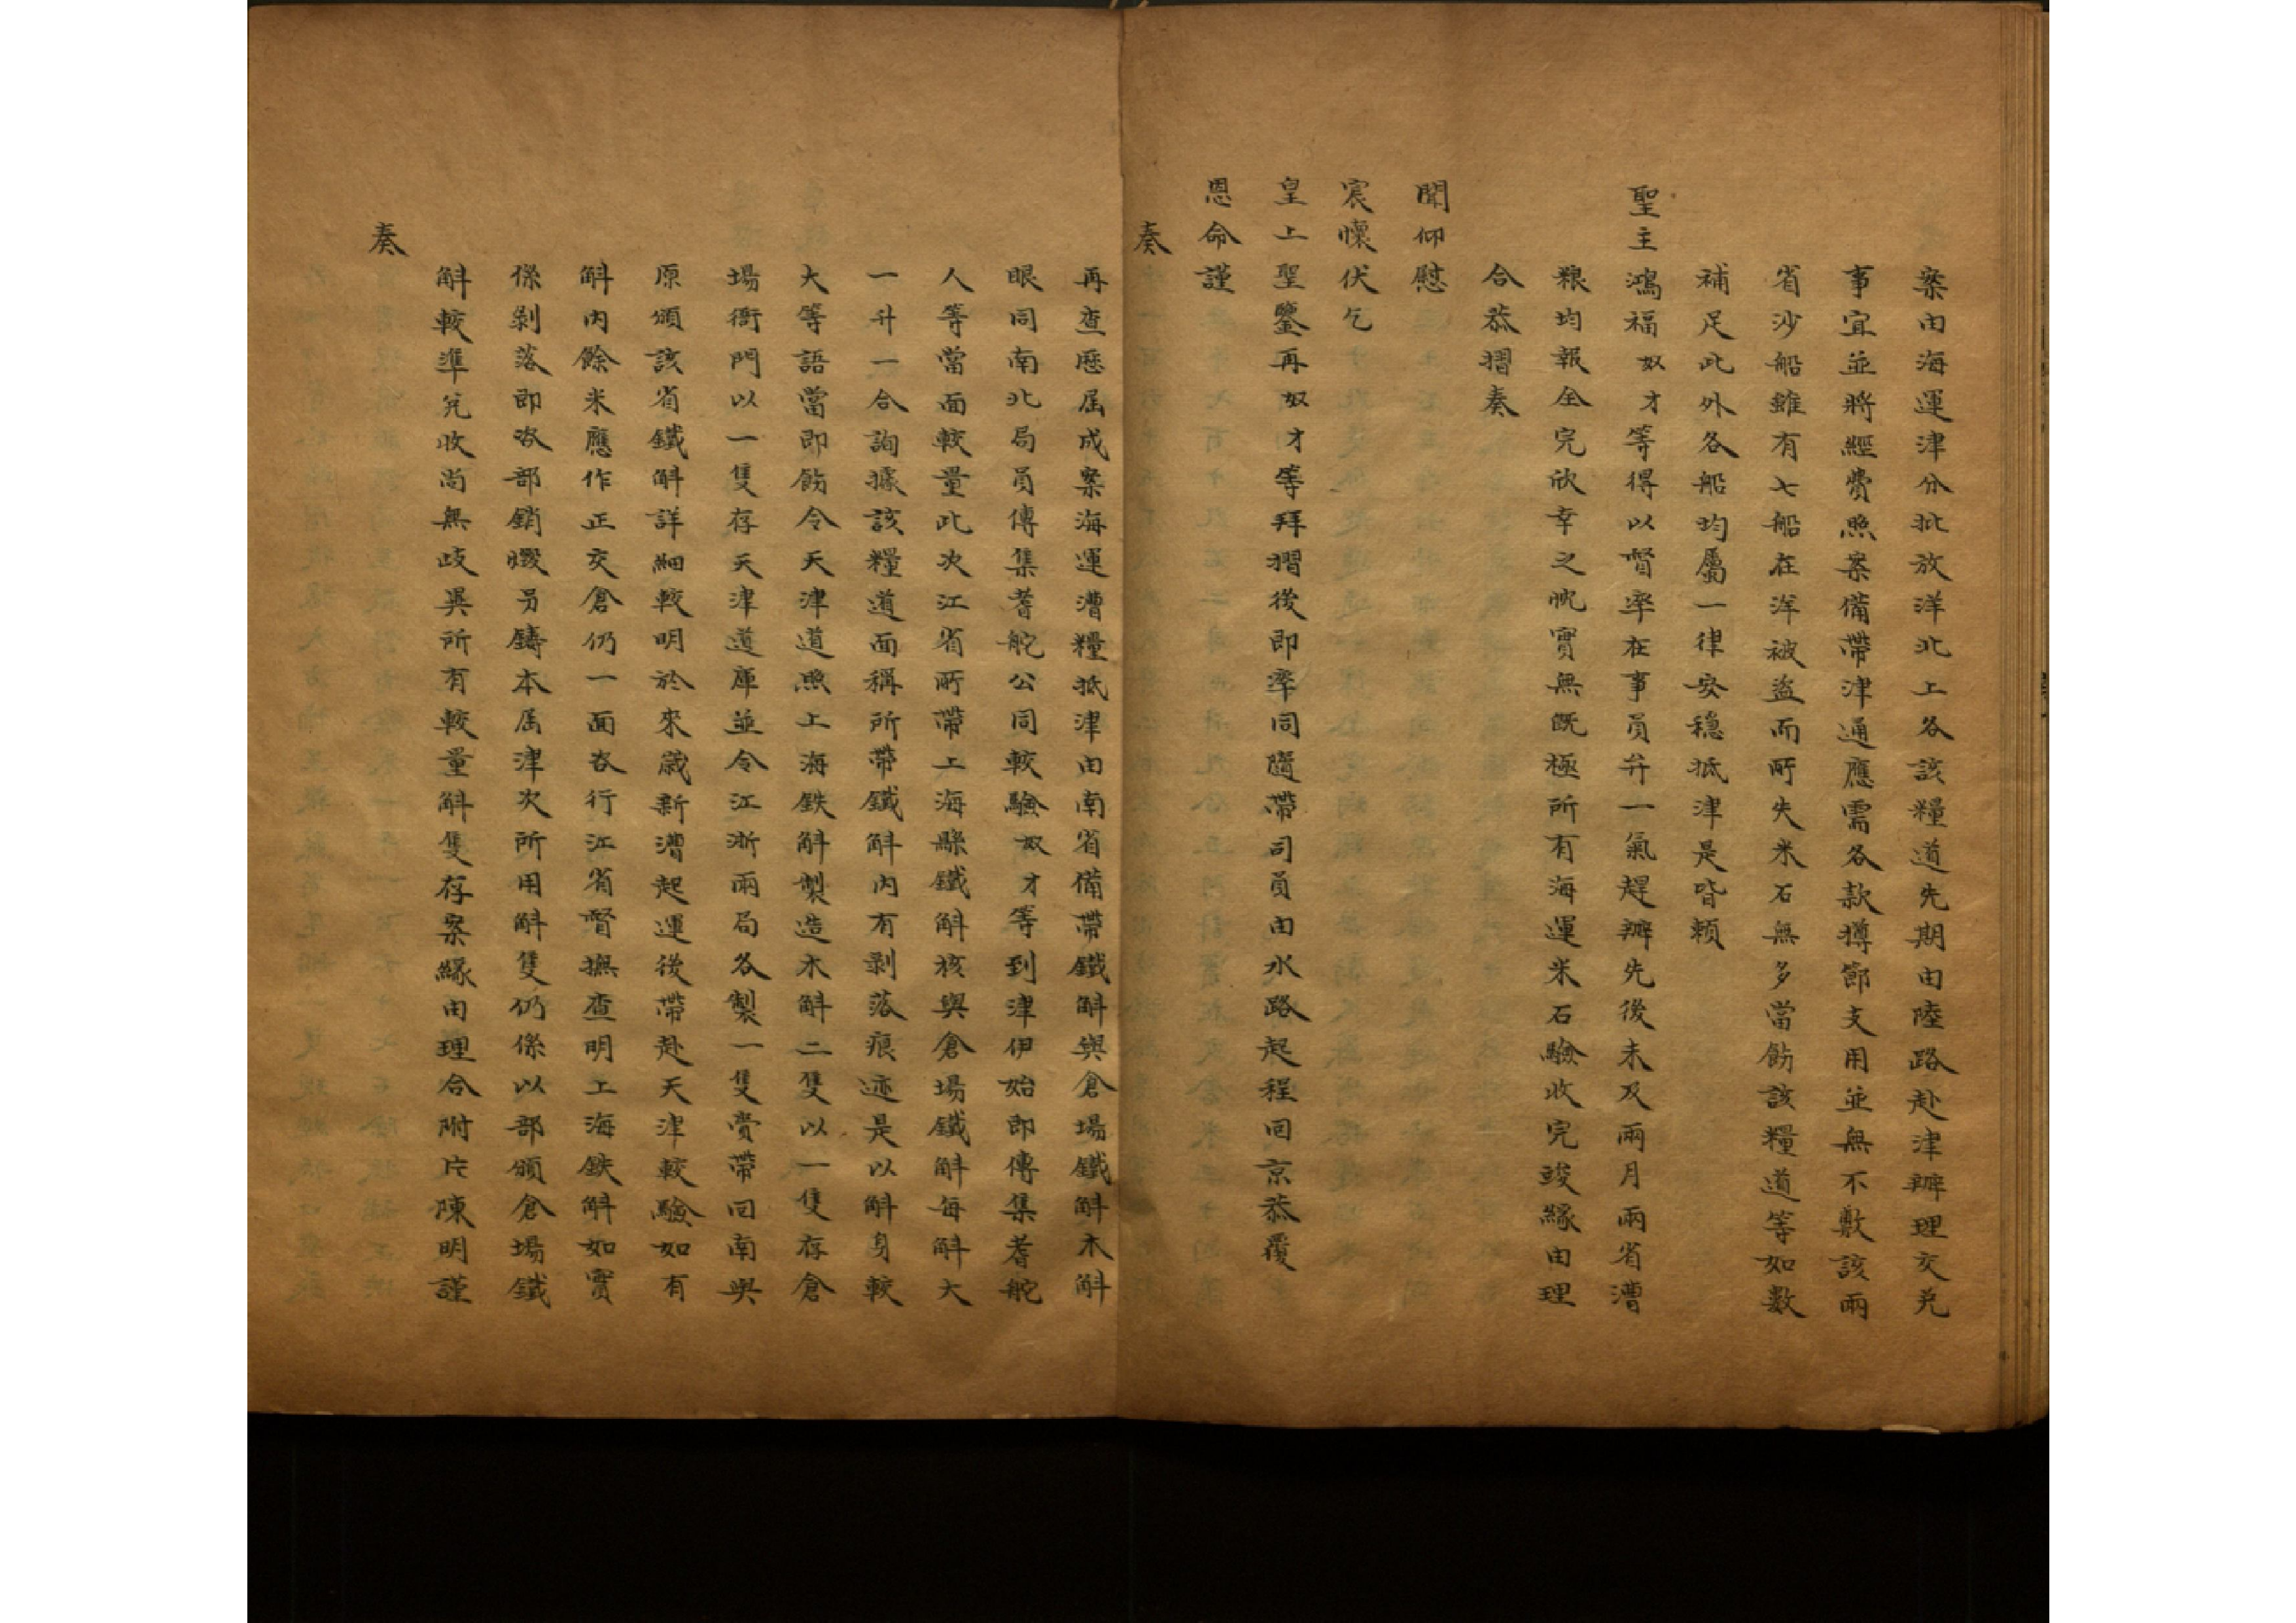 案由海運津分批放洋北上各該糧道先期由陸路赴津辦理交兌
事宜並將經費照案備帶津通應需各款撙節支用並無不敷該兩
省沙船雖有七船在洋被盜而所失米石無多當飭該糧道等如數
補足此外各船均屬一律安穩抵津是皆賴
聖主鴻福奴才等得以督率在事員弁一氣趕辦先後未及兩月兩省漕
粮均報全完欣幸之忱實無既極所有海運米石驗收完竣緣由理
合恭摺奏
聞仰慰
宸懷伏乞
皇上聖鑒再奴才等拜摺後即率同隨帶司員由水路起程回京恭覆
恩命謹
奏
再查歷屆成案海運漕糧抵津由南省備帶鐵斛與倉場鐵斛木斛
眼同南北局員傳集耆舵公同較驗奴才等到津伊始即傳集耆舵
人等當面較量此次江省所帶上海縣鐵斛核與倉場鐵斛每斛大
一升一合詢據該糧道面稱所帶鐵斛內有剝落痕迹是以斛身較
大等語當即飭令天津道照上海鉄斛製造木斛二隻以一隻存倉
場衙門以一隻存天津道庫並令江浙兩局各製一隻賫帶回南與
原頒該省鐵斛詳細較明於來歲新漕起運後帶赴天津較驗如有
斛內餘米應作正交倉仍一面咨行江省督撫查明上海鉄斛如實
係剝落即咨部銷燬另鑄本屆津次所用斛隻仍係以部頒倉場鐵
斛較準兌收尚無歧異所有較量斛隻存案緣由理合附片陳明謹
奏